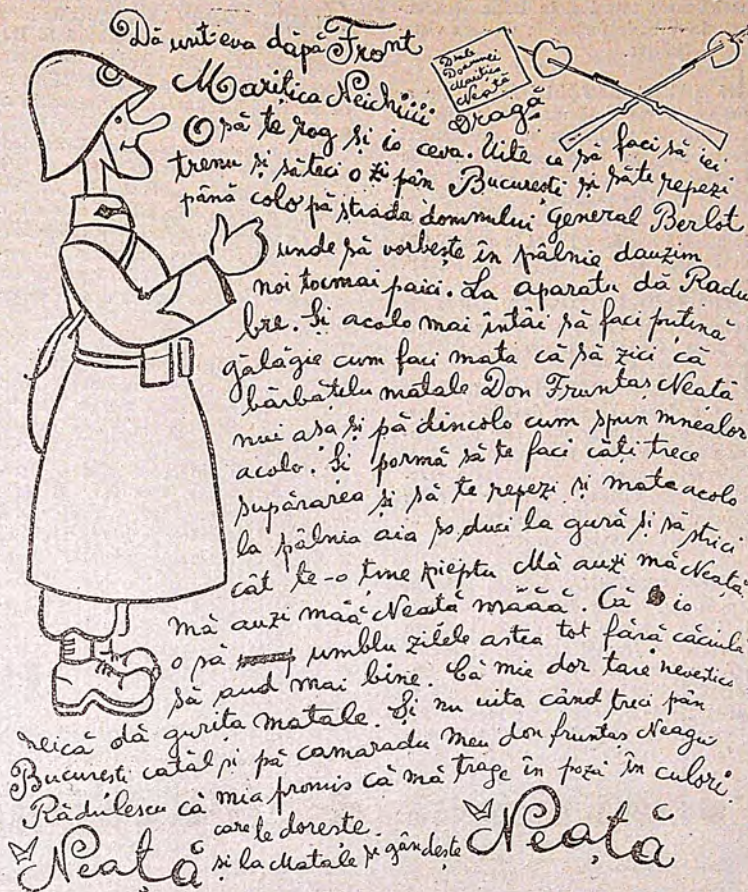 Dă unt'eva dăpă Front
Marițica Neichiiii Dragă
Dnale
Doamnei
Maritica
Neată
O să te rog și io ceva. Uite ce să faci să iei
trenu și săteci o zi pân București și săte repezi
până colo pă strada domnului General Berlot
unde să vorbește în pâlnie dauzim
noi tocmai paici. La aparatu dă Radu
bre. Și acolo mai întâi să faci puțină
gălăgie cum faci mata că să zici că
bărbățelu matale Don Fruntaș Neată
nui asa și pă dincolo cum spun mnealor
acolo. Și pormă să te faci căți trece
supărarea și să te repezi și mata acolo
la pâlnia aia so duci la gură și să strici
cât te-o tine pieptu Mă auzi mă Neață
mă auzi măă Neată măăă. Că io
o să umblu zilele astea tot fără căciulă
să aud mai bine. Că mie dor tare nevestica
neică dă gurița matale. Și nu uita când treci pân
București catăl și pă camaradu meu don fruntaș Neagu
Rădulescu că mia promis că mă trage în poză în culori.
care te dorește
și la Matale se gândește
Neată
Neață